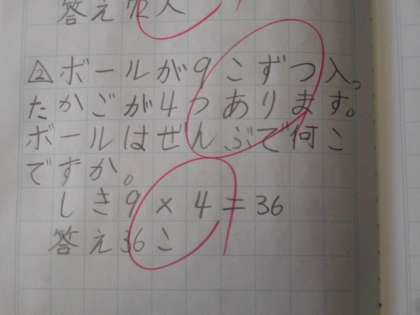 答え72人
△2 ボールが9こずつ入っ
たかごが4つあります。
ボールはぜんぶで何こ
ですか。
しき9×4=36
答え36こ